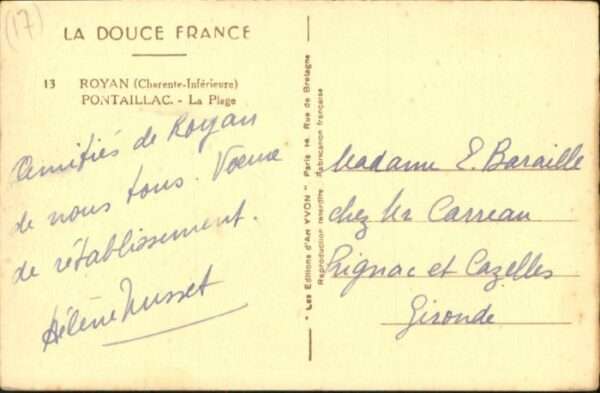 (17)
LA DOUCE FRANCE
13 ROYAN (Charente-Inférieure)
PONTAILLAC. - La Plage
Amitiés de Royan
de nous tous. Voeux
de rétablissement.
Hélène Musset
" Les Editions d'Art YVON " Paris 15, Rue de Bretagne
Reproduction interdite Fabrication française
Madame E. Baraille
chez Mr Carreau
Lignac et Cazelles
Gironde